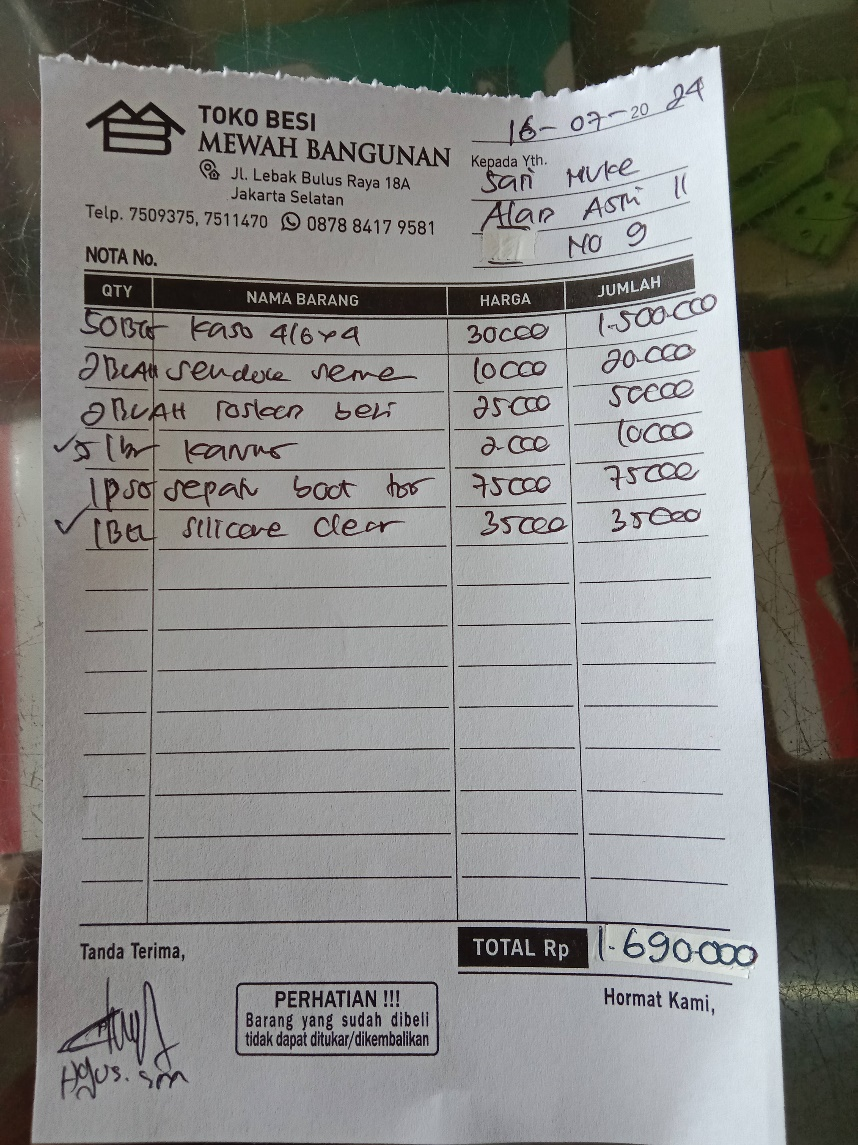 TOKO BESI
MEWAH BANGUNAN
Jl. Lebak Bulus Raya 18A
Jakarta Selatan
Telp. 7509375, 7511470 0878 8417 9581
16-07-2024
Kepada Yth.
Sari Muke
Alan Asri II
No 9
NOTA No.
QTY NAMA BARANG HARGA JUMLAH
50BTG kaso 4/6x4 30000 1.500.000
2BUAH sendok 10000 20.000
2BUAH beri 25000 50000
5 lbr 2.000 10000
1psg sepatu boot 75000 75000
1Btl silicone clear 35000 35000
TOTAL Rp 1.690.000
Tanda Terima,
PERHATIAN !!!
Barang yang sudah dibeli
tidak dapat ditukar/dikembalikan
Hormat Kami,
Agus.